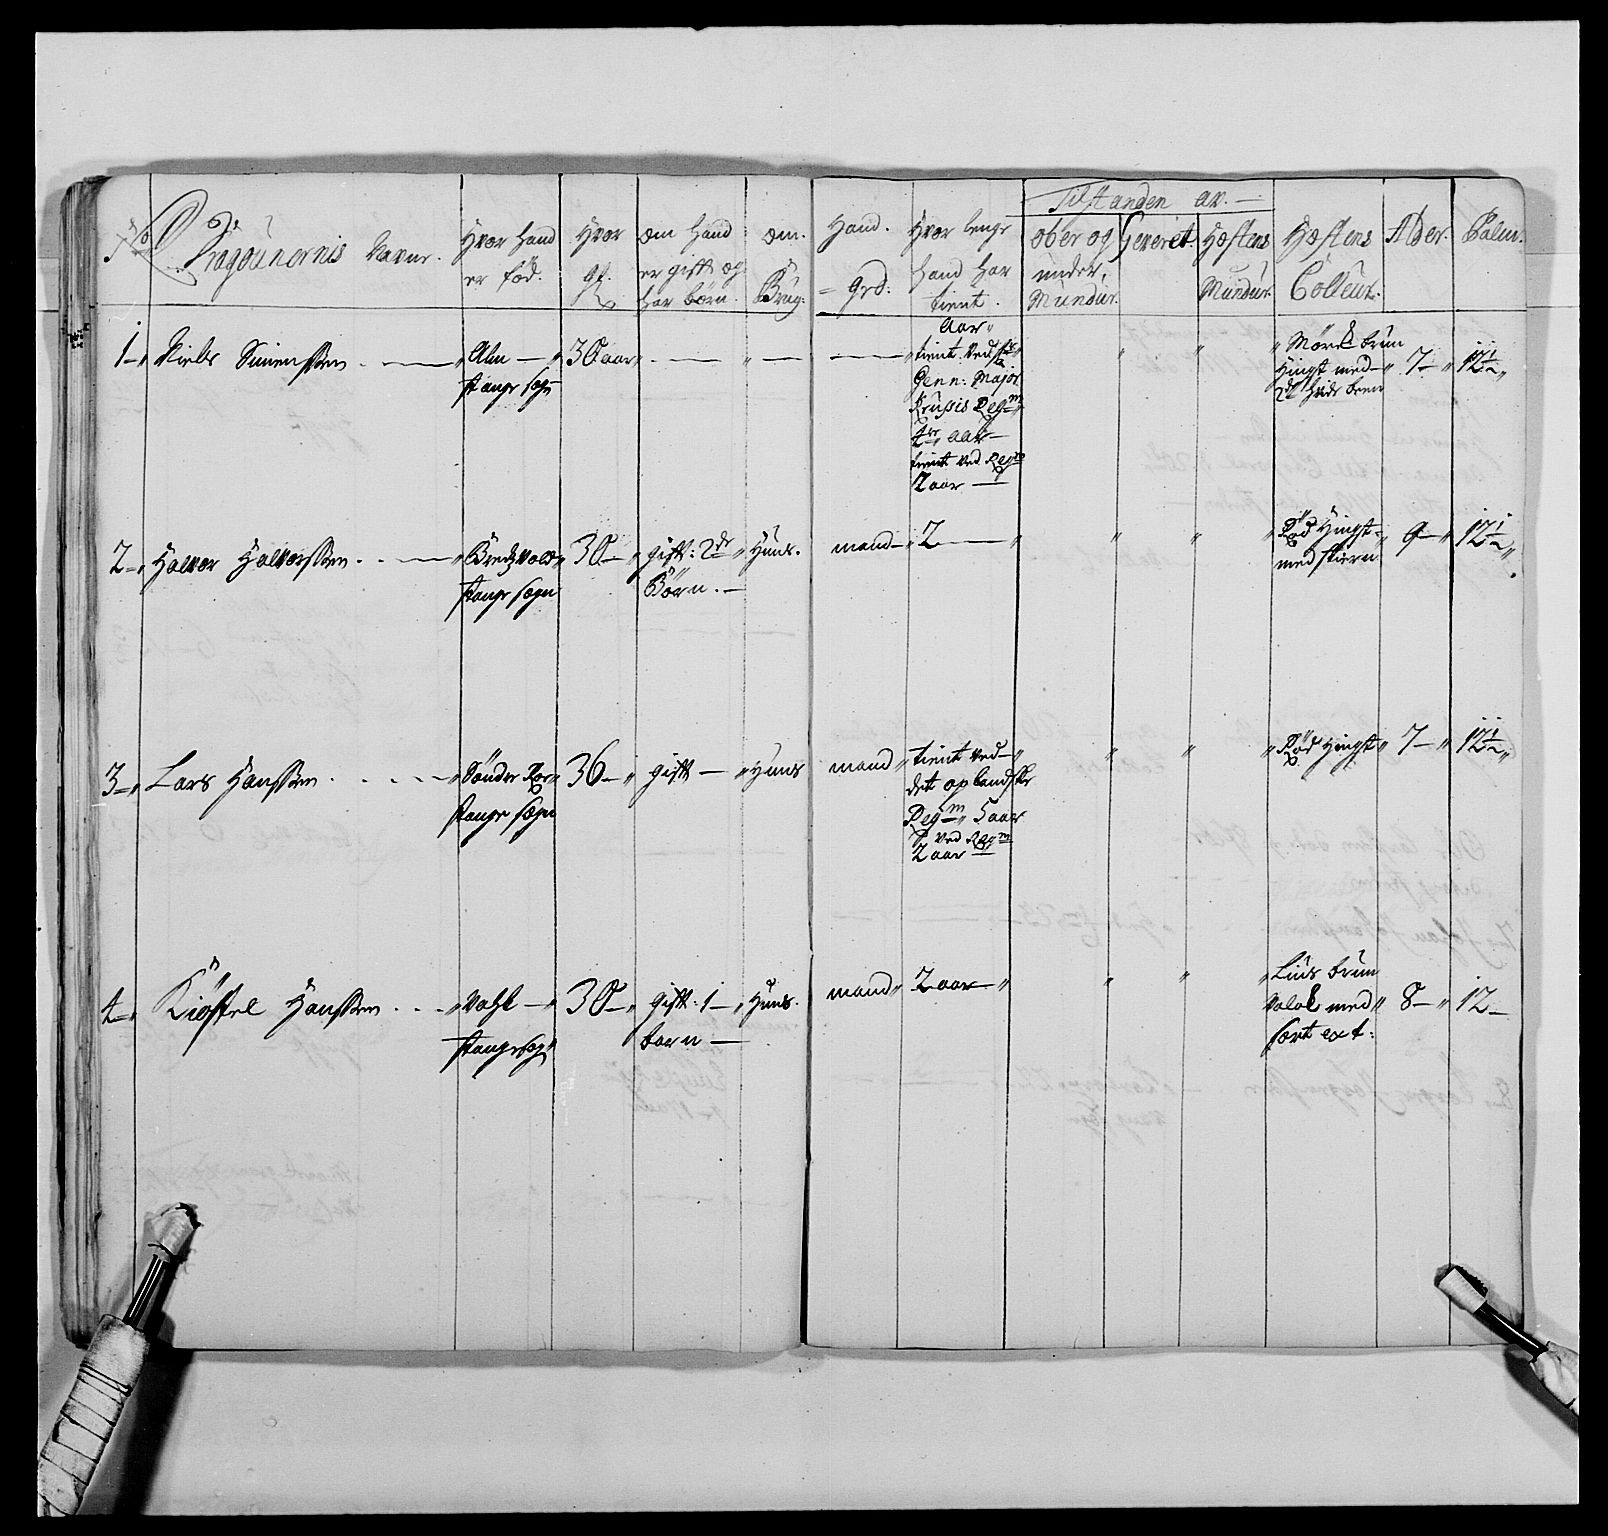 No Dragounernis Navne.
Hvor hand
er föd.
Hvor
gl.
om hand
er gift og
har börn.
om.
Brug:
Hand.
grd:
Hvor lenge
hand har
tient.
Tilstanden av.
ober og
under,
Mundur.
Geveret
Hæstens
Mundur.
Hæstens
Colleur.
Alder.
Palm.
1 Niels Simenssen
Alm
Stange Sogn
30 aar
Aar
tient ved
Genn: Major
Krusis Regm
aar
tient ved Regm
2 aar
Mörk brun
Hingst med
hvide been
7
12 1/2
2 Halvor Halvorssen
Stange Sogn
30
gift: 2de
Börn.
Huus.
mand
2
Röd Hingst
med stiern
9
12 1/2
3 Lars Hanssen
Sönder
Stange Sogn
36
gift
Huus
mand
tient ved
det oplandske
Regm 5 aar
ved Regm
2 aar
Röd Hingst
7
12 1/2
4 Kiöstel Hanssen
Vohl
Stange Sogn
30
gift: 1
barn
Huus.
mand
2 aar
Lius brun
Valak med
sort ext:
8
12